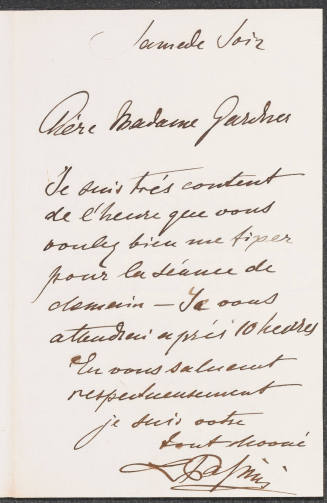 Samedi Soir
Chère Madame Gardner
Je suis trés content
de l'heure que vous
voulez bien me fixer
pour la séance de
demain – Je vous
attendrai aprés 10 heures
En vous saluant
respectueusement
je suis votre
tout devoué